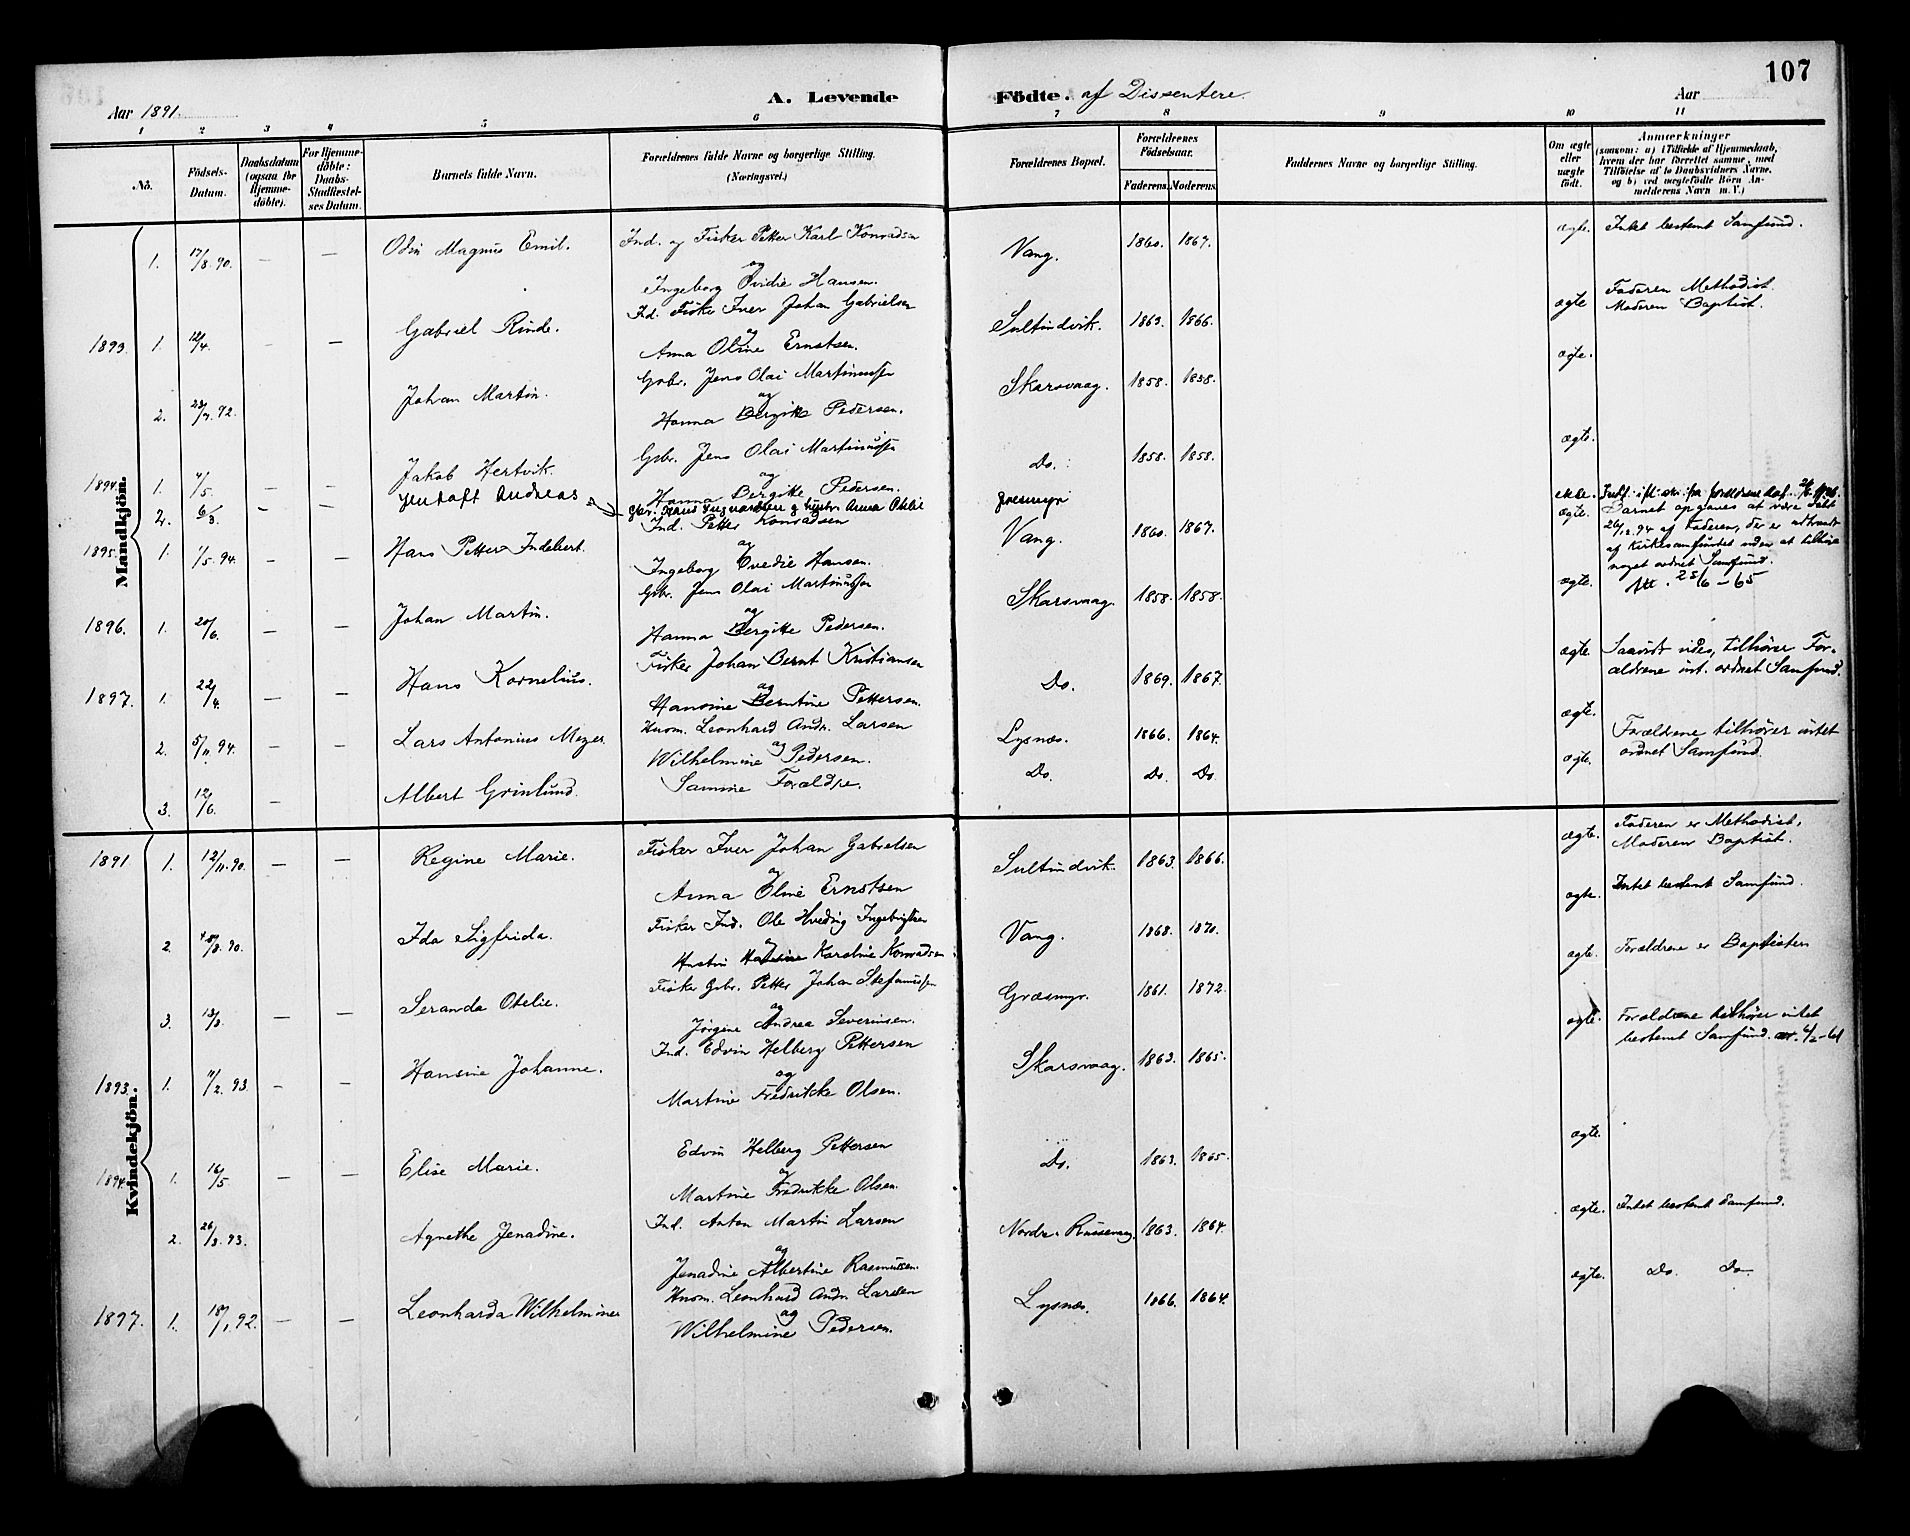 107
Aar 1891.
A. Levende Födte. af Dissentere.
Aar
1 2 3 4 5 6 7 8 9 10 11
No.
Födsels-Datum.
Daabsdatum (ogsaa for Hjemme-döbte).
For Hjemme-döbte: Daabs-Stadfæstel-ses Datum.
Barnets fulde Navn.
Forældrenes fulde Navne og borgerlige Stilling. (Næringsvei.)
Forældrenes Bopæl.
Forældrenes Födselsaar.
Faderens. Moderens.
Faddernes Navne og borgerlige Stilling.
Om ægte eller uægte födt.
Anmærkninger (saasom: a) i Tilfælde af Hjemmedaab, hvem der har forrettet samme, med Tilföielse af to Daabsvidners Navne, og b) ved uægtefödte Börn An-melderens Navn m. V.)
Mandkjön.
1. 17/8.90. — — Odin Magnus Emil. Ind. og Fisker Petter Karl Konradsen og Ingeborg Ovidie Hansen. Vang. 1860. 1867. ægte. Intet bestemt Samfund.
1893. 1. 12/4. — — Gabriel Rinde. Ind. Fisker Iver Johan Gabrielsen og Anna Oline Ernstsen. Sultindvik. 1863. 1866. ægte Faderen Methodist. Moderen Baptist.
2. 92. Johan Martin. Gbr. Jens Olai Martinussen og Hanna Bergitte Pedersen. Skarsvaag. 1858. 1858. ægte.
1894. 1. 4/5. — — Jakob Hertvik. Gbr. Jens Olai Martinussen og Hanna Bergitte Pedersen. Do. 1858. 1858. ægte.
2. 6/3. Andreas Gbr. Hans og hustr. Anna Otelie ekte.
1895. 1. 1/5.94. — — Hans Petter Indebert. Ind. Petter Konradsen og Ingeborg Ovedie Hansen. Vang. 1860. 1867. ægte. Barnet opgives at være døbt 26/12.94 af Faderen, der er udtraadt af Kirkesamfundet uden at tilhøre noget ordnet Samfund. Att. 25/6-65
1896. 1. 20/6. — — Johan Martin. Gbr. Jens Olai Martinussen og Hanna Bergitte Pedersen. Skarsvaag. 1858. 1858. ægte.
1897. 1. 22/4. — — Hans Kornelius. Fisker Johan Bernt Kristiansen og Hansine Berntine Pettersen. Do. 1869. 1867. ægte. Saavidt vides, tilhører For-ældrene int. ordnet Samfund.
2. 5/11.94. — — Lars Antonius Meyer. Husm. Leonhard Andr. Larsen og Wilhelmine Pedersen. Lysnæs. 1866. 1864. ægte. Forældrene tilhører intet ordnet Samfund.
3. 12/6. — Albert Grinlund. Samme Forældre. Do. Do. Do. ægte.
Kvindekjön.
1891 1. 12/11.90. — — Regine Marie. Fisker Iver Johan Gabrielsen og Anna Oline Ernstsen Sultindvik. 1863. 1866. ægte. Faderen er Methodist, Moderen Baptist.
2. 90. Ida Sigfrida. Fisker Ind. Ole Hvedrig Ingebrigtsen og Hustru Karoline Konradsen. Vang. 1868. 1870. ægte. Intet bestemt Samfund.
3. 13/3. — — Seranda Otelie. Fisker Gbr. Petter Johan Stefanussen og Jørgine Andrea Severinsen. Græsmyr. 1861. 1872. ægte. Forældrene er Baptister
1893. 1. 11/2.93. — — Hansine Johanne. Ind. Edvin Helberg Pettersen og Martine Fredrikke Olsen. Skarsvaag. 1863. 1865. ægte. Forældrene tilhører intet bestemt Samfund.
1894. 1. 16/5 — — Elise Marie. Edvin Helberg Pettersen og Martine Fredrikke Olsen. Do. 1863. 1865. ægte.
2. 26/3.93. Agnethe Jenadine. Ind. Anton Martin Larsen og Jenadine Albertine Rasmussen. Nordre Russevaag. 1863. 1864. ægte. Intet bestemt Samfund.
1897. 1. 18/1.92. — — Leonharda Wilhelmine Husm. Leonhard Andr. Larsen og Wilhelmine Pedersen. Lysnæs. 1866. 1864. ægte. Do. Do.